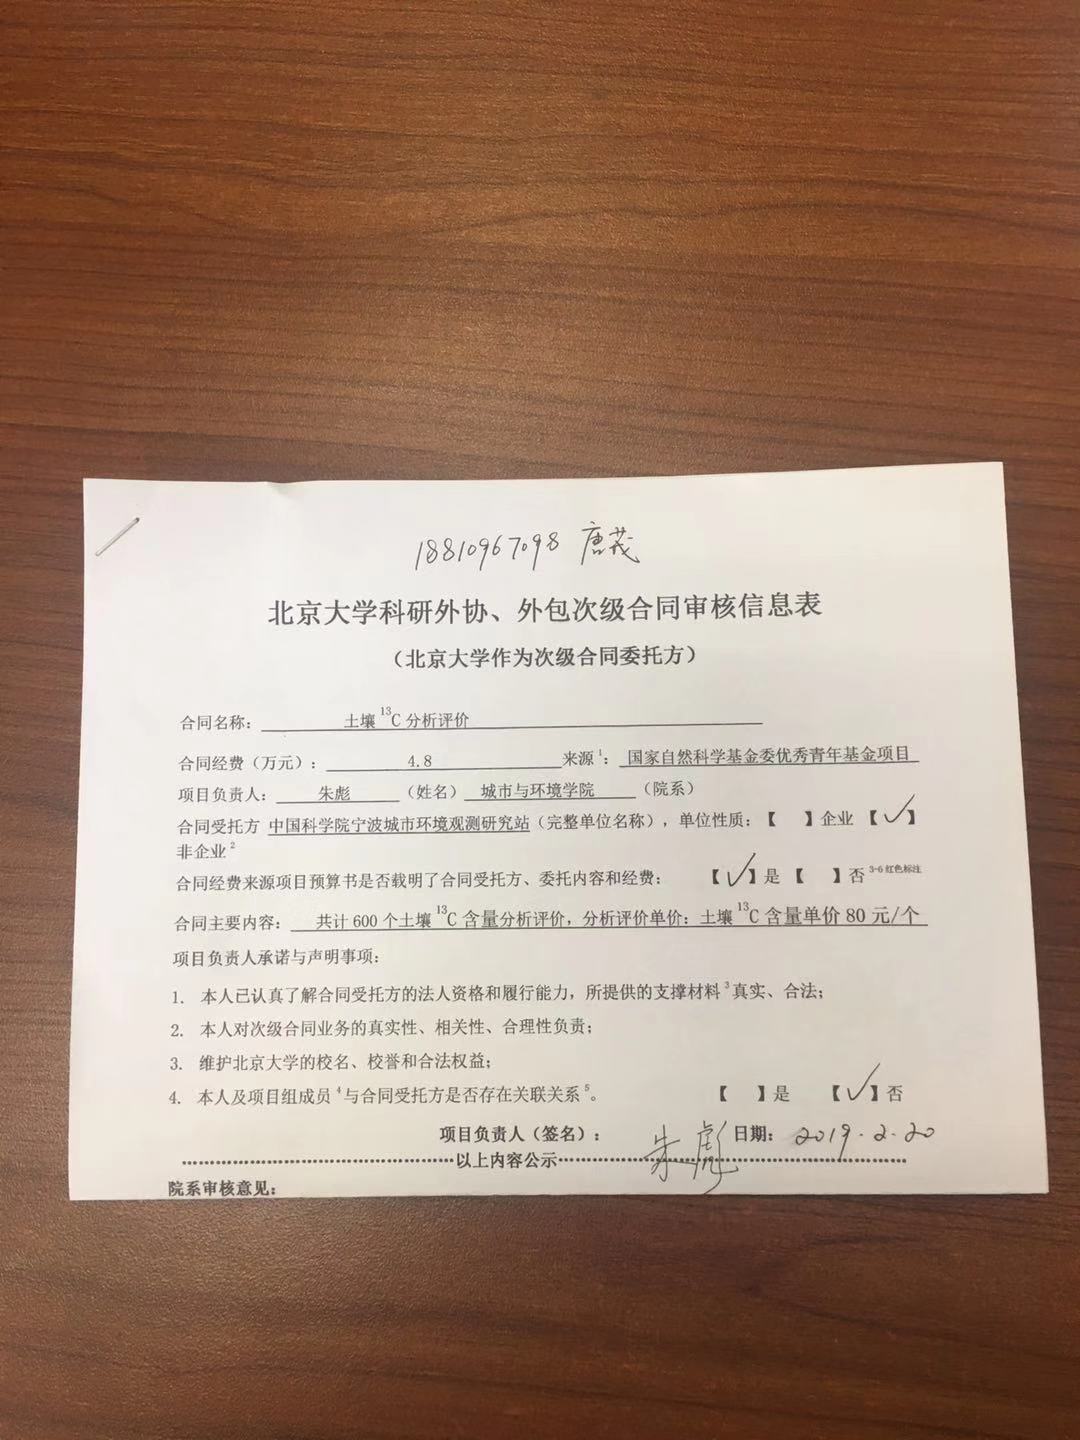 18810967098 唐茂
北京大学科研外协、外包次级合同审核信息表
（北京大学作为次级合同委托方）
合同名称： 土壤 13C 分析评价
合同经费（万元）： 4.8 来源1： 国家自然科学基金委优秀青年基金项目
项目负责人： 朱彪 （姓名） 城市与环境学院 （院系）
合同受托方 中国科学院宁波城市环境观测研究站（完整单位名称），单位性质：【 】企业 【√】
非企业2
合同经费来源项目预算书是否载明了合同受托方、委托内容和经费： 【√】是 【 】否 3-6 红色标注
合同主要内容： 共计 600 个土壤 13C 含量分析评价，分析评价单价：土壤 13C 含量单价 80 元/个
项目负责人承诺与声明事项：
1. 本人已认真了解合同受托方的法人资格和履行能力，所提供的支撑材料3真实、合法；
2. 本人对次级合同业务的真实性、相关性、合理性负责；
3. 维护北京大学的校名、校誉和合法权益；
4. 本人及项目组成员4与合同受托方是否存在关联关系5。 【 】是 【√】否
项目负责人（签名）： 朱彪 日期： 2019.2.20
以上内容公示
院系审核意见：